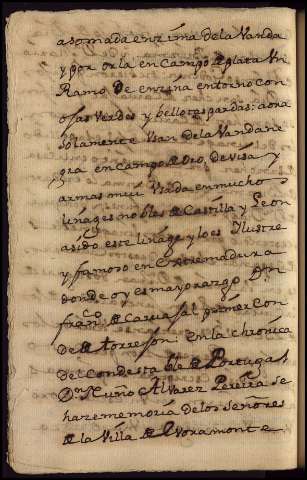 asomada en zima de la Vanda
y por orla en campo de plata Un
Ramo De enzina en torno con
ojas Verdes y bellotas pardas: aora
solamente Usan de la Vanda ne
gra en campo de Oro, devisa y
armas mui Usada en mucho
linages nobles de Castilla y Leon
a sido este linage y lo es Ilustre
y famoso en Extremadura
donde oy es mayorazgo Dn
franco de Carvajal primer Con
De de Torrejon: en la chronica
del Condestable de Portugal
Dn Nuño Alvarez Pereira se
haze memoria de los Señores
de la Villa de Evoramonte